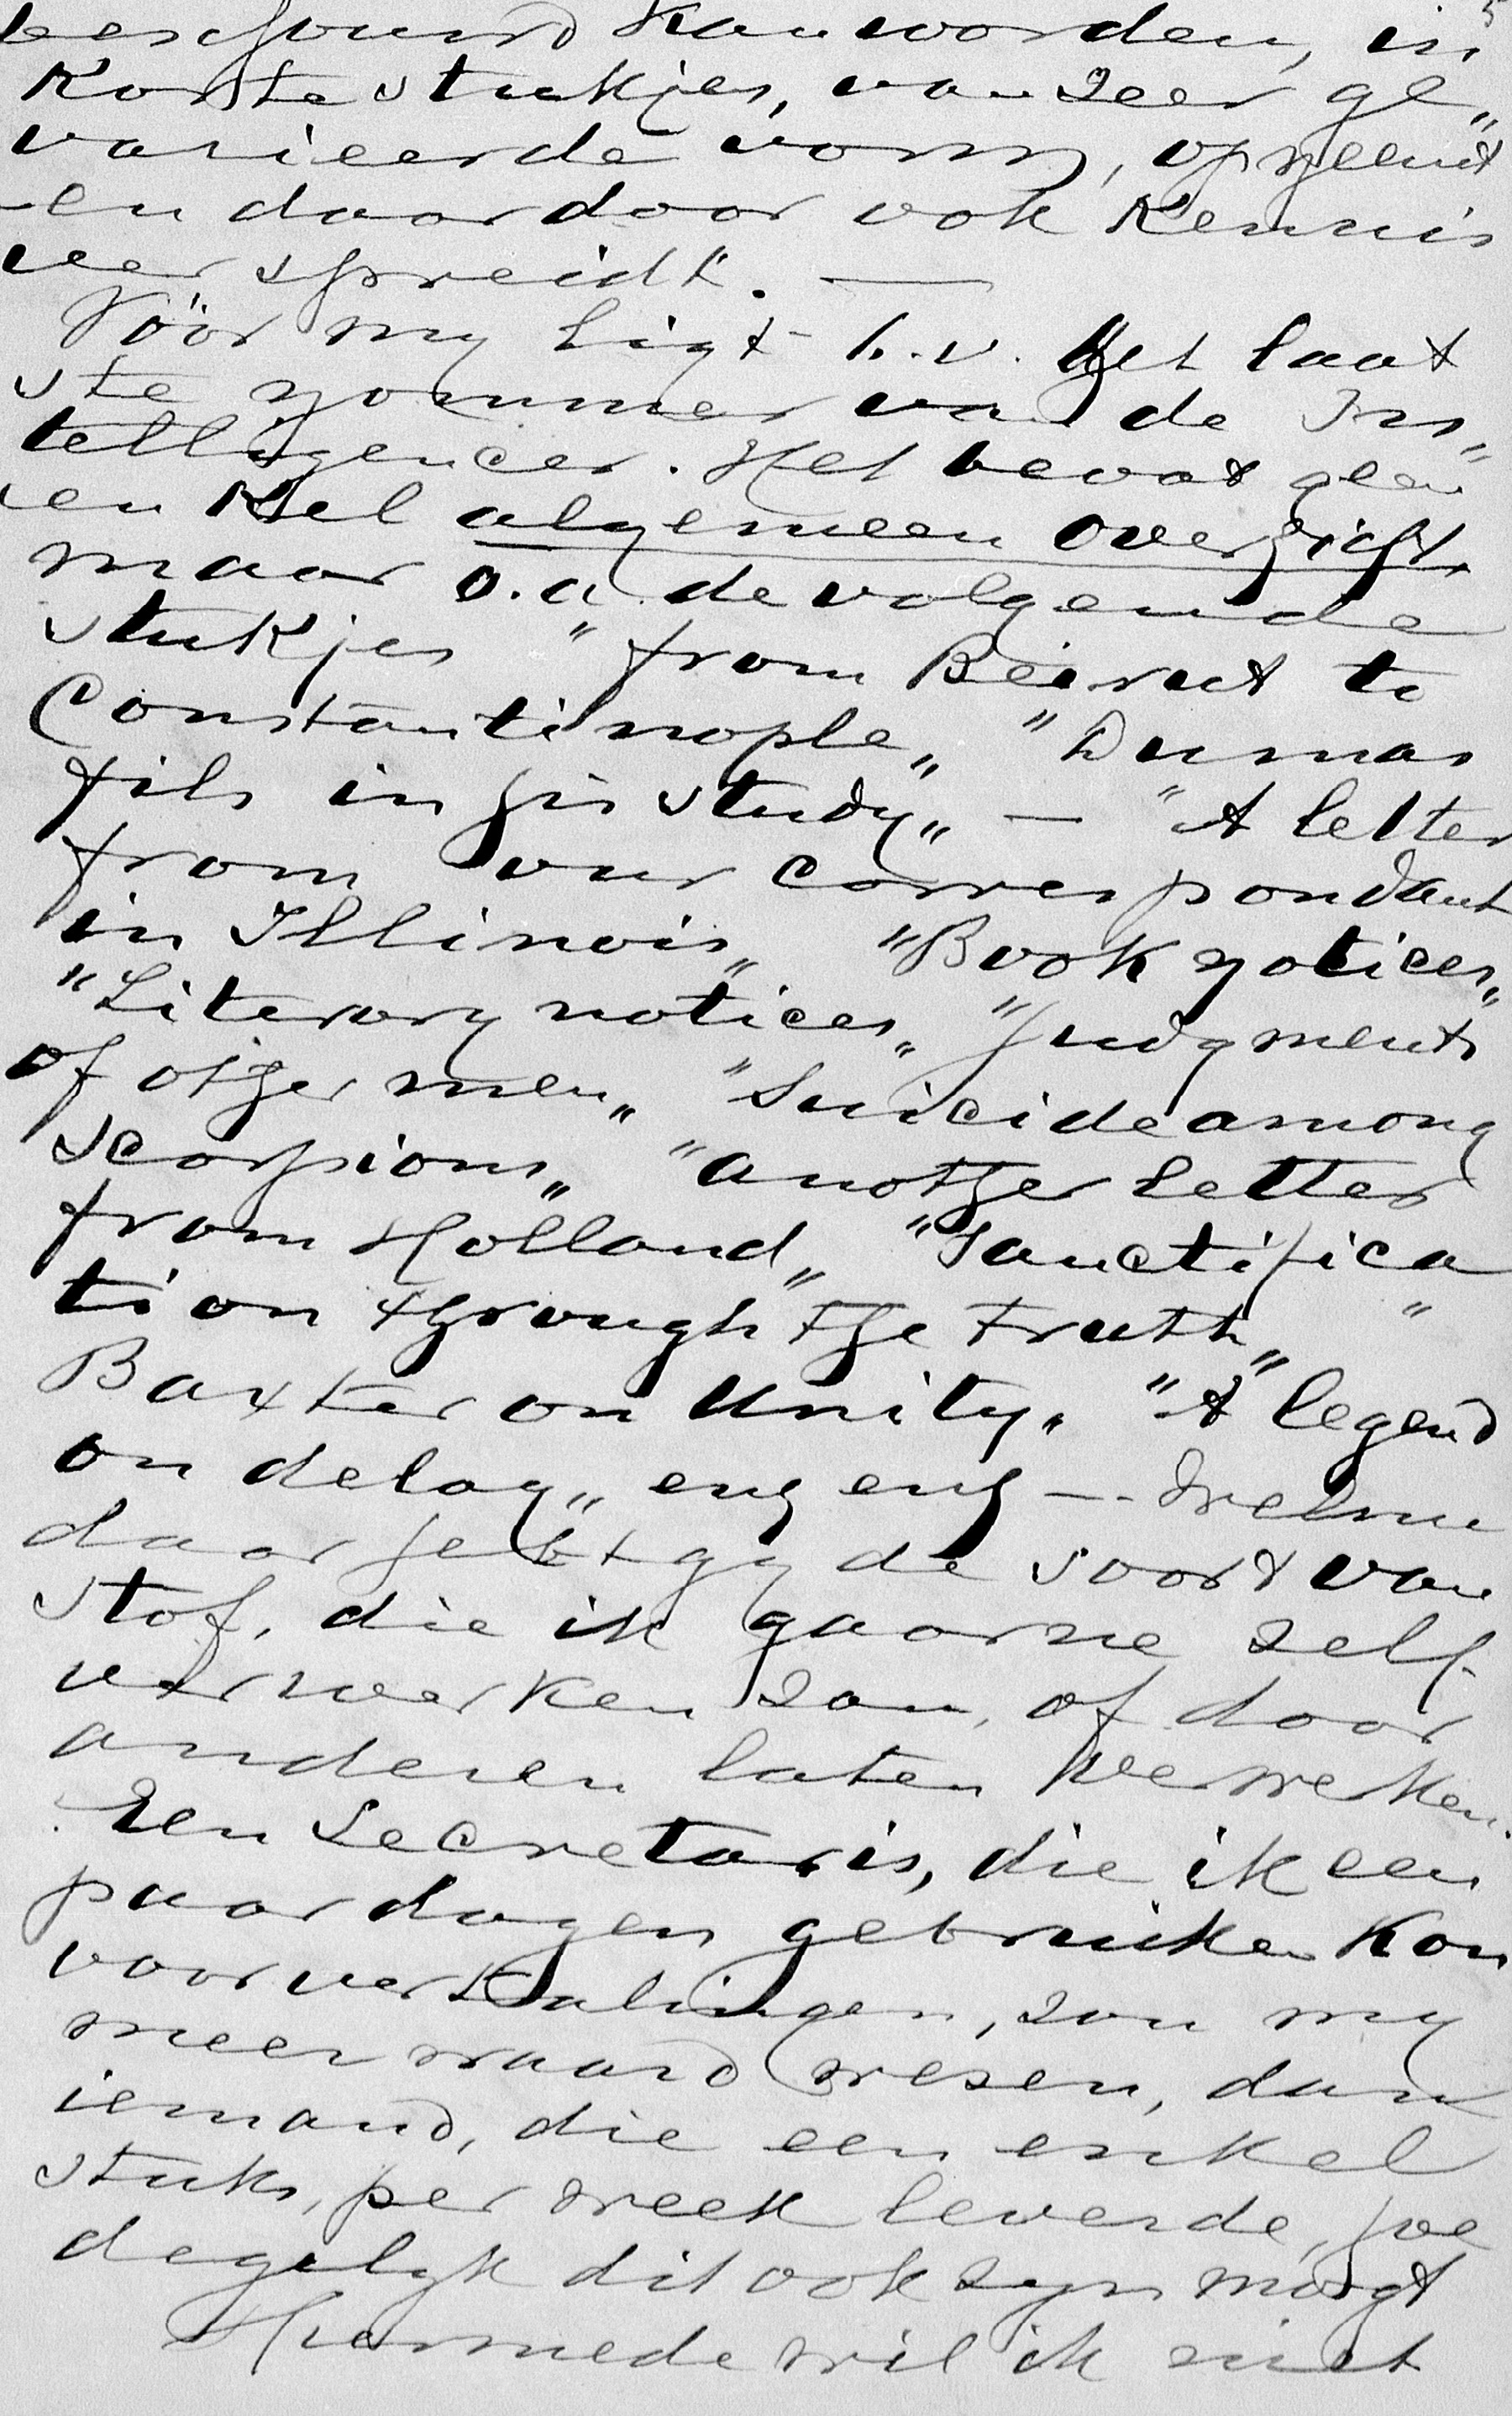 beschouwd kan worden, in
Korte stukjes, van zeer ge„
varieerde vorm, opneemt
en daardoor ook Kennis
verspreidt. —
Vóór my ligt b.v. Het laat
ste nommer van de In„
telligencer. Het bevat geen
enkel algemeen overzicht,
maar o.a. de volgende
stukjes "from Beirut to
Constantinople„ "Dumas
fils in his study„ — "A letter
from our correspondant
in Illinois„ "Book notices„
"Literary notices„ "Judgments
of other men„ "Suicide among
scorpions„ "another letter
from Holland„ "Sanctifica
tion through the truth„ "
Baxter on Unity„ "A legend
on delay„ enz enz — Welnu
daar hebt gy de soort van
stof, die ik gaarne zelf
verwerken zou, of door
anderen laten verwerken.
Een Secretaris, die ik een
paar dagen gebruiken kon
voor vertalingen, zou my
meer waard wezen, dan
iemand, die een enkel
stuk, per week leverde, hoe
degelyk dit ook zyn mogt
Hiermede wil ik niet